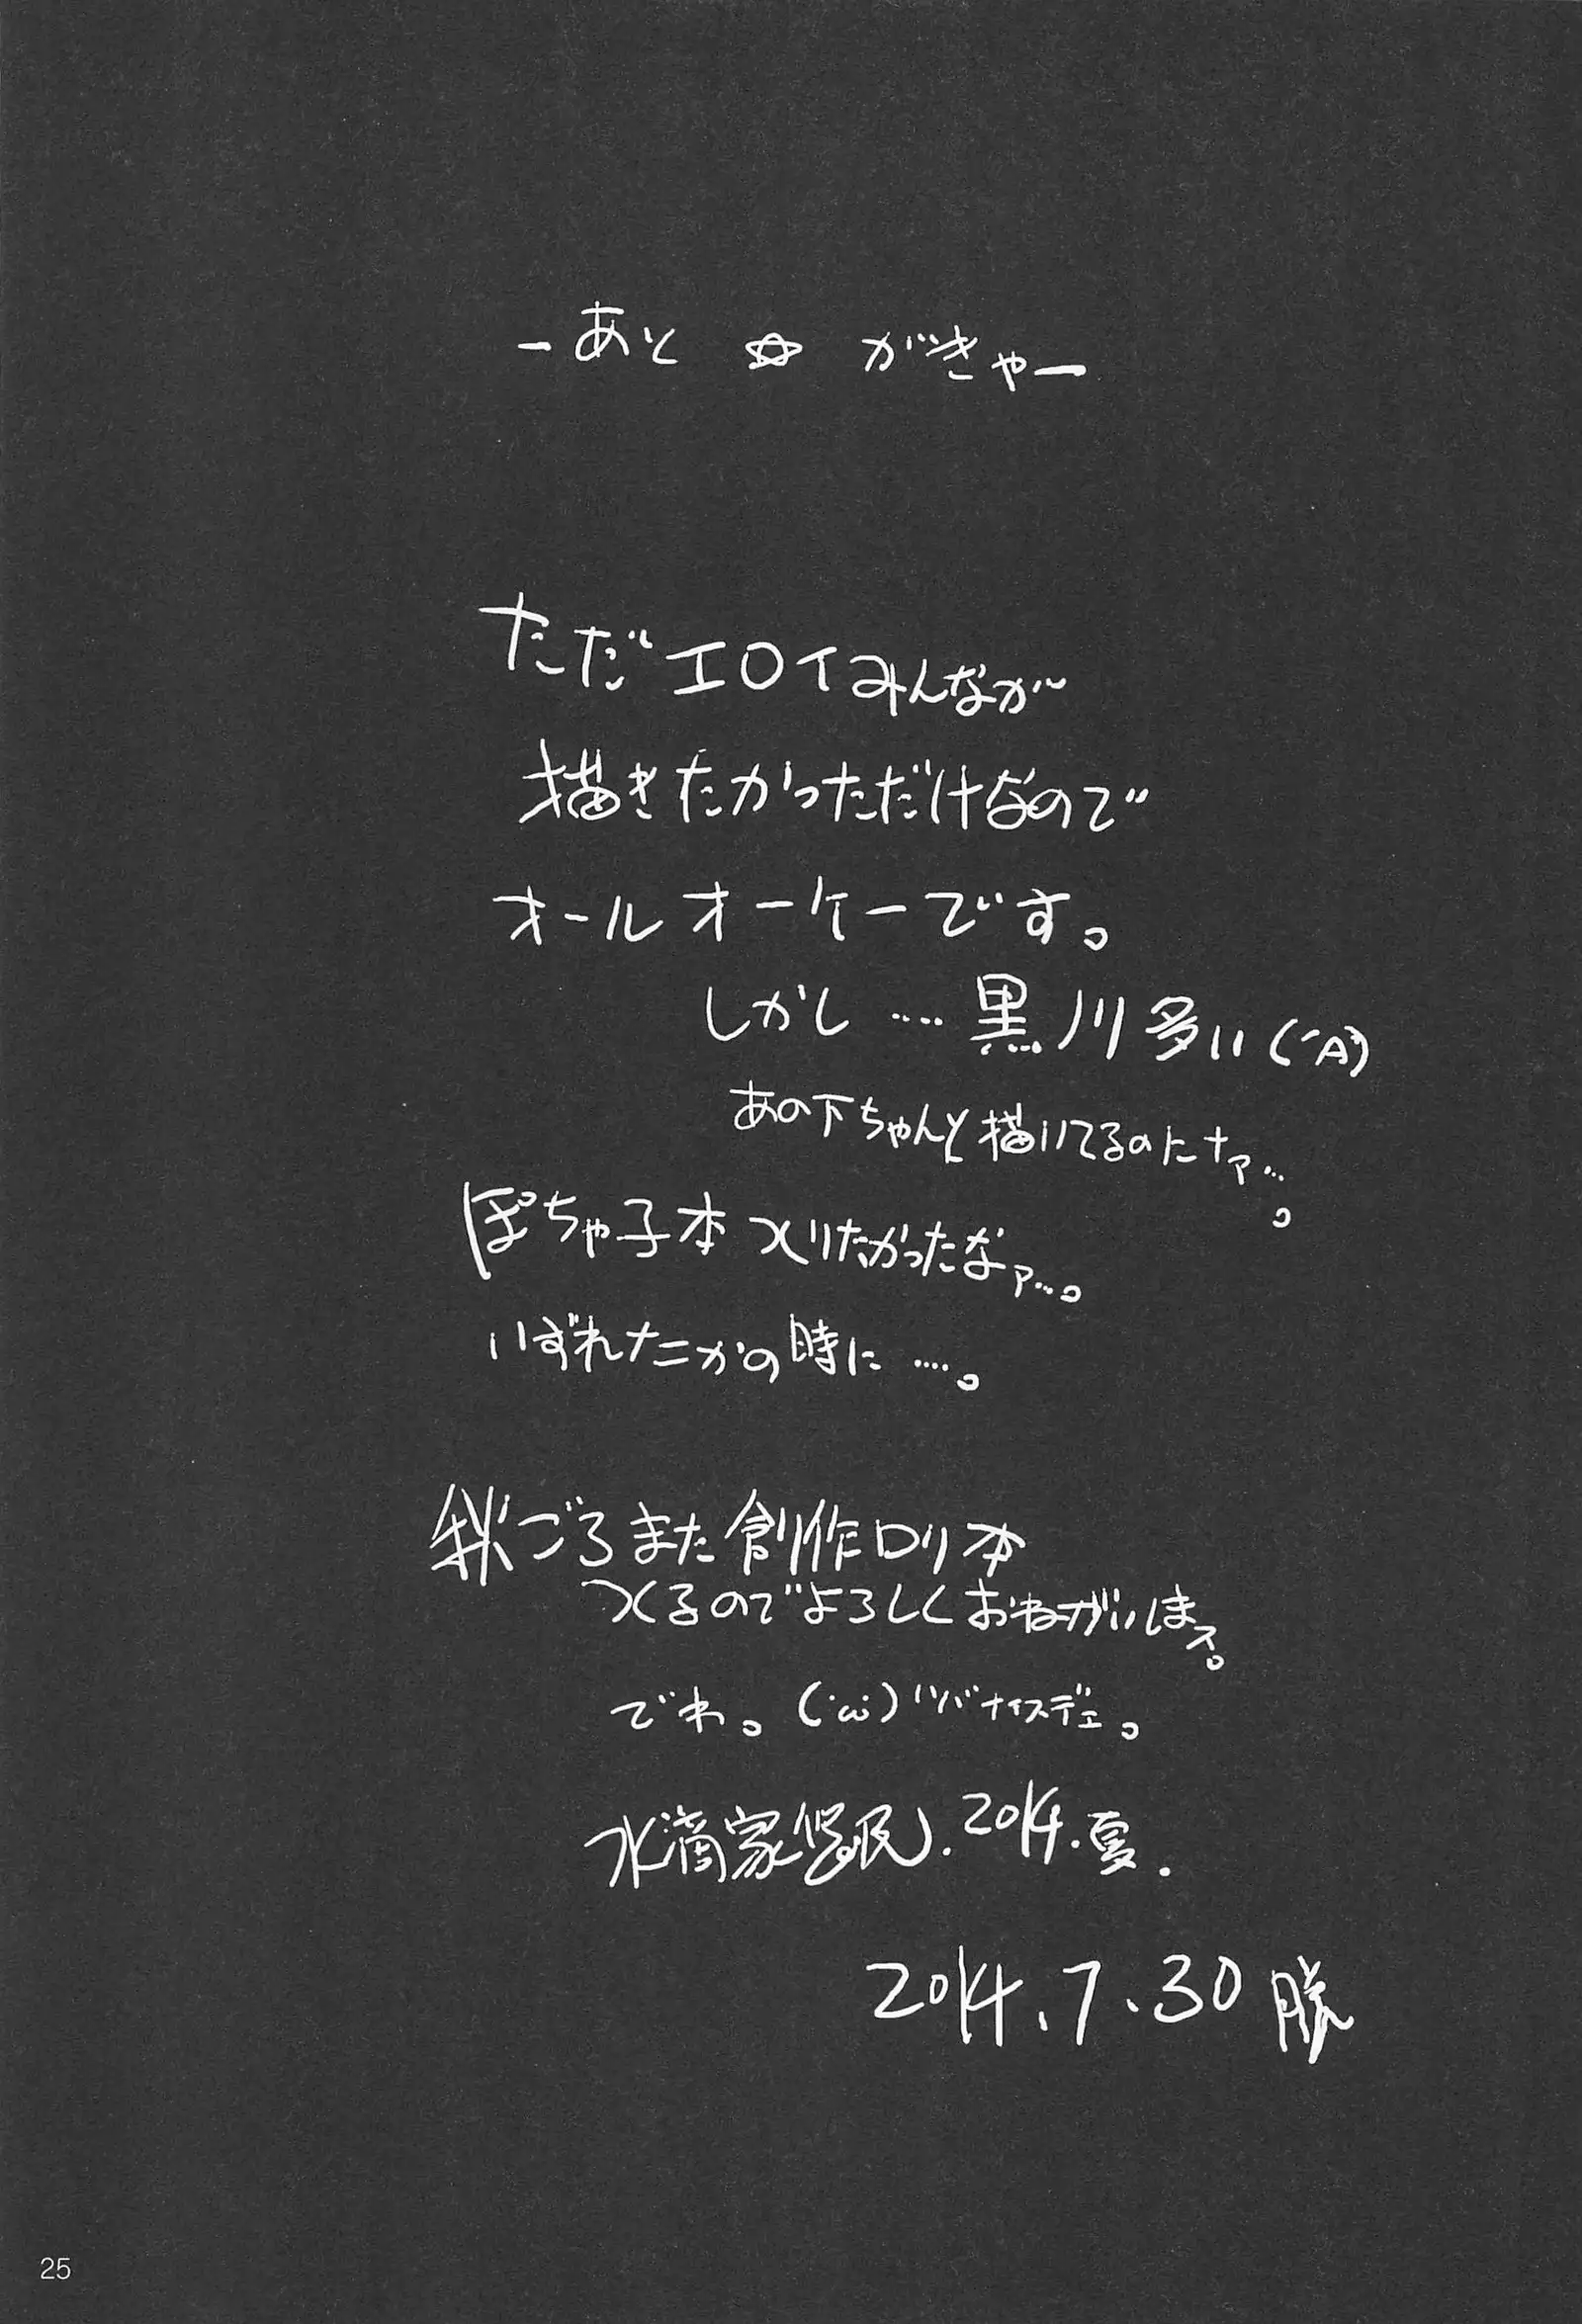 ーあと☆がきゃー
ただエロイみんなが
描きたかっただけなので
オールオーケーです。
しかし‥‥黒ノリ多い(´A`)
あの下ちゃんと描いてるのにナァ…。
ぽちゃ子本つくりたかったなァ…。
いずれナニかの時に‥‥。
秋ごろまた創作ロリ本
つくるのでよろしくおねがいしまス。
でわ。(´ω`)ハバナイスデェ。
水滴家 民.2014.夏.
2014.7.30
25